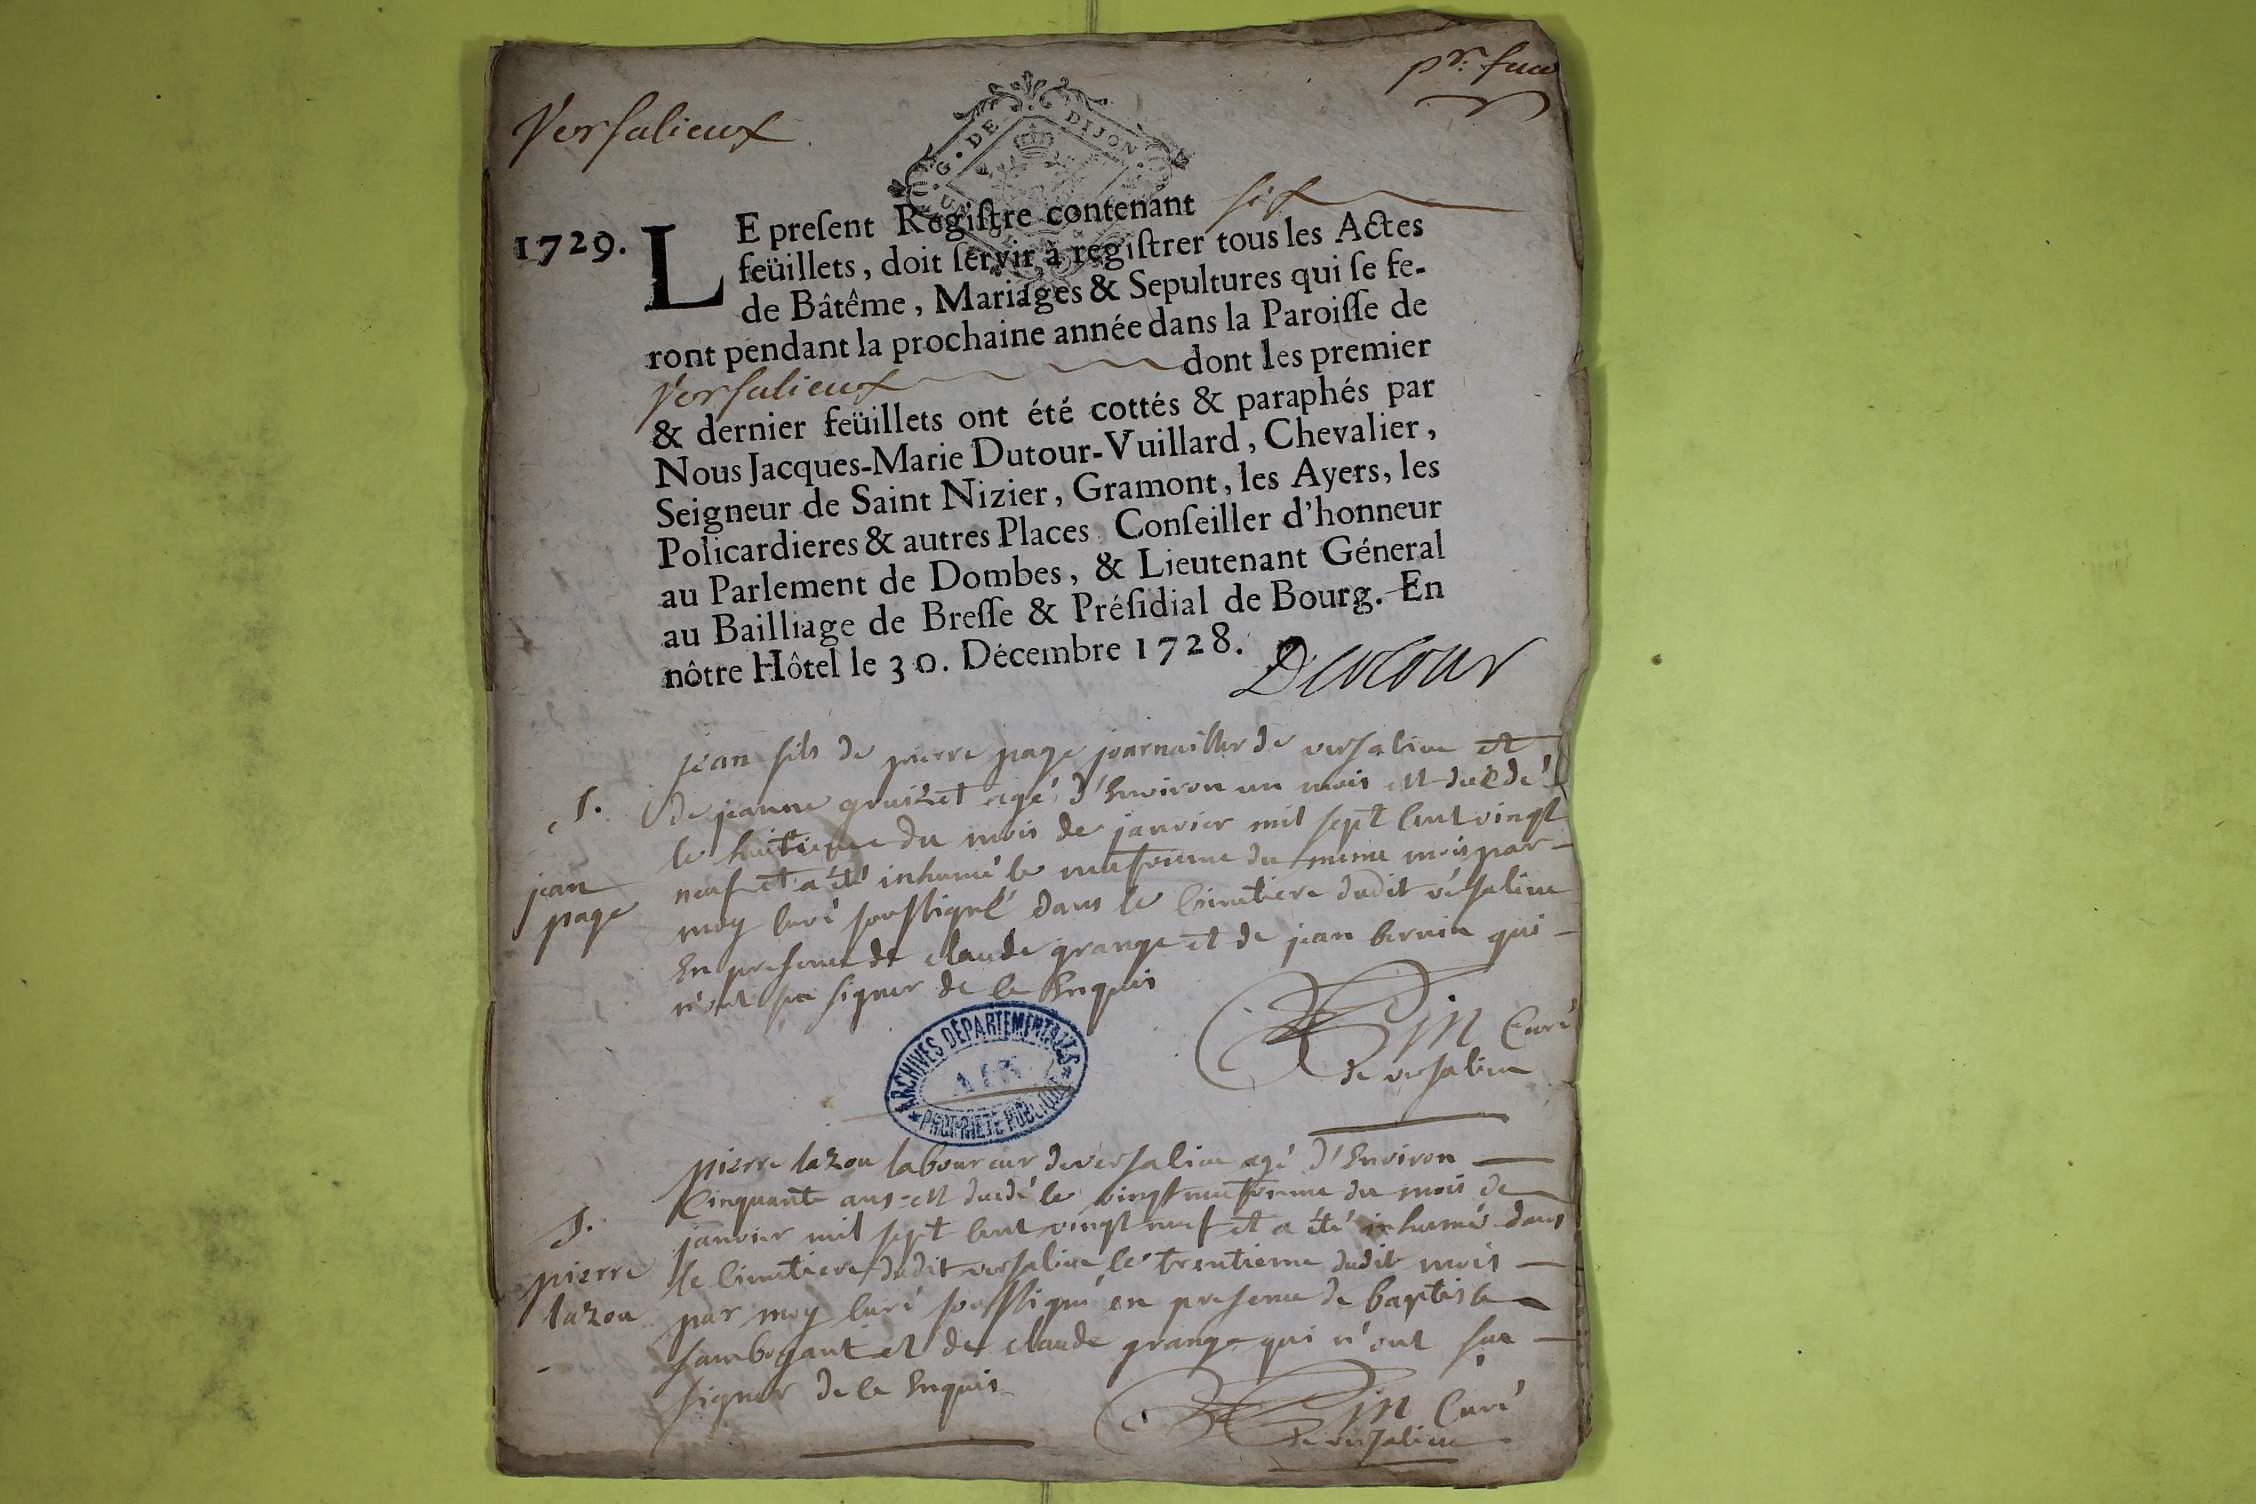 Versalieux
G. DE DIJON
1729.
LE preſent Regiſtre contenant six
feüillets, doit ſervir à regiſtrer tous les Actes
de Bâtême, Mariages & Sepultures qui ſe fe-
ront pendant la prochaine année dans la Paroiſſe de
Versalieux dont les premier
& dernier feüillets ont été cottés & paraphés par
Nous Jacques-Marie Dutour-Vuillard, Chevalier,
Seigneur de Saint Nizier, Gramont, les Ayers, les
Policardieres & autres Places, Conſeiller d'honneur
au Parlement de Dombes, & Lieutenant Géneral
au Bailliage de Breſſe & Préſidial de Bourg. En
nôtre Hôtel le 30. Décembre 1728.
Dutour
S.
jean
page
jean fils de pierre page journaillier de versalieu et
de jeanne agé d'environ un mois est decedé
le huitieme du mois de janvier mil sept cent vingt
neuf et a été inhumé le neufvieme du meme mois par
moy curé soussigné dans le cimetiere dudit versalieu
en presence de claude grange et de jean qui
n'ont sçu signer de ce enquis
curé
de versalieu
ARCHIVES DÉPARTEMENTALES
AIN
PROPRIÉTÉ PUBLIQUE
S.
pierre
lazou
pierre lazou laboureur de versalieu agé d'environ
cinquante ans est decedé le vingt neufvieme du mois de
janvier mil sept cent vingt neuf et a été inhumé dans
le cimetiere dudit versalieu le trentieme dudit mois
par moy curé soussigné en presence de baptiste
et de claude grange qui n'ont sçu
signer de ce enquis
curé
de versalieu